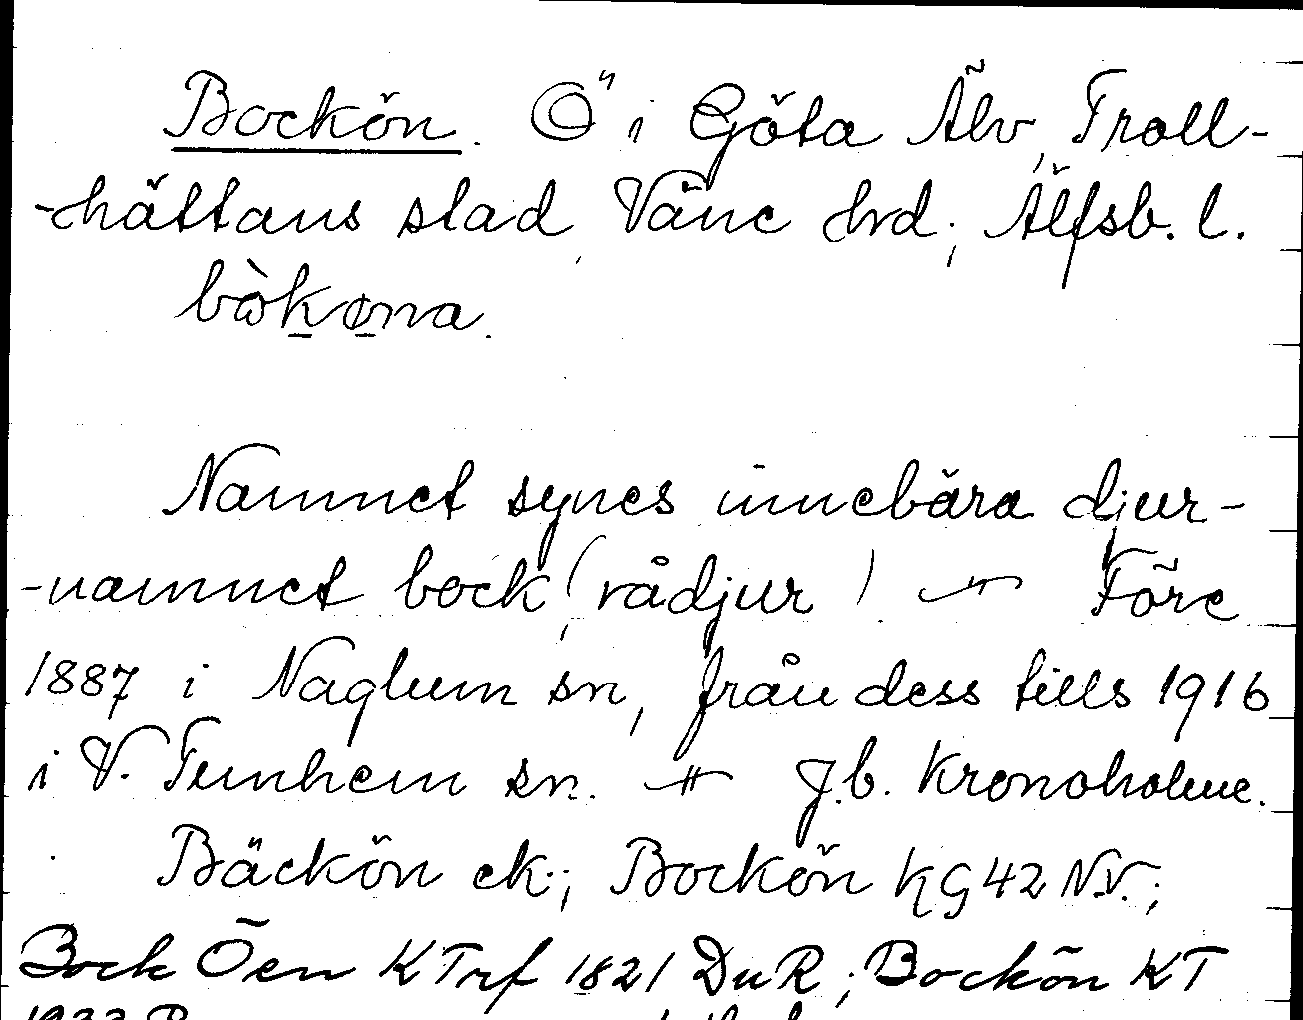 Bockön. Ö i Göta Älv, Troll-
-hättans stad, Väne hrd; Älfsb. l.
bòkøna.
Namnet synes innebära djur-
-namnet bock (rådjur) # Före
1887 i Naglum sn, från dess tills 1916
i V. Tunhem sn. # J.b. Kronoholme.
Bäckön ek.; Bockön KG42 N.V.;
Bock Öen KTrf 1821 DuR; Bockön KT